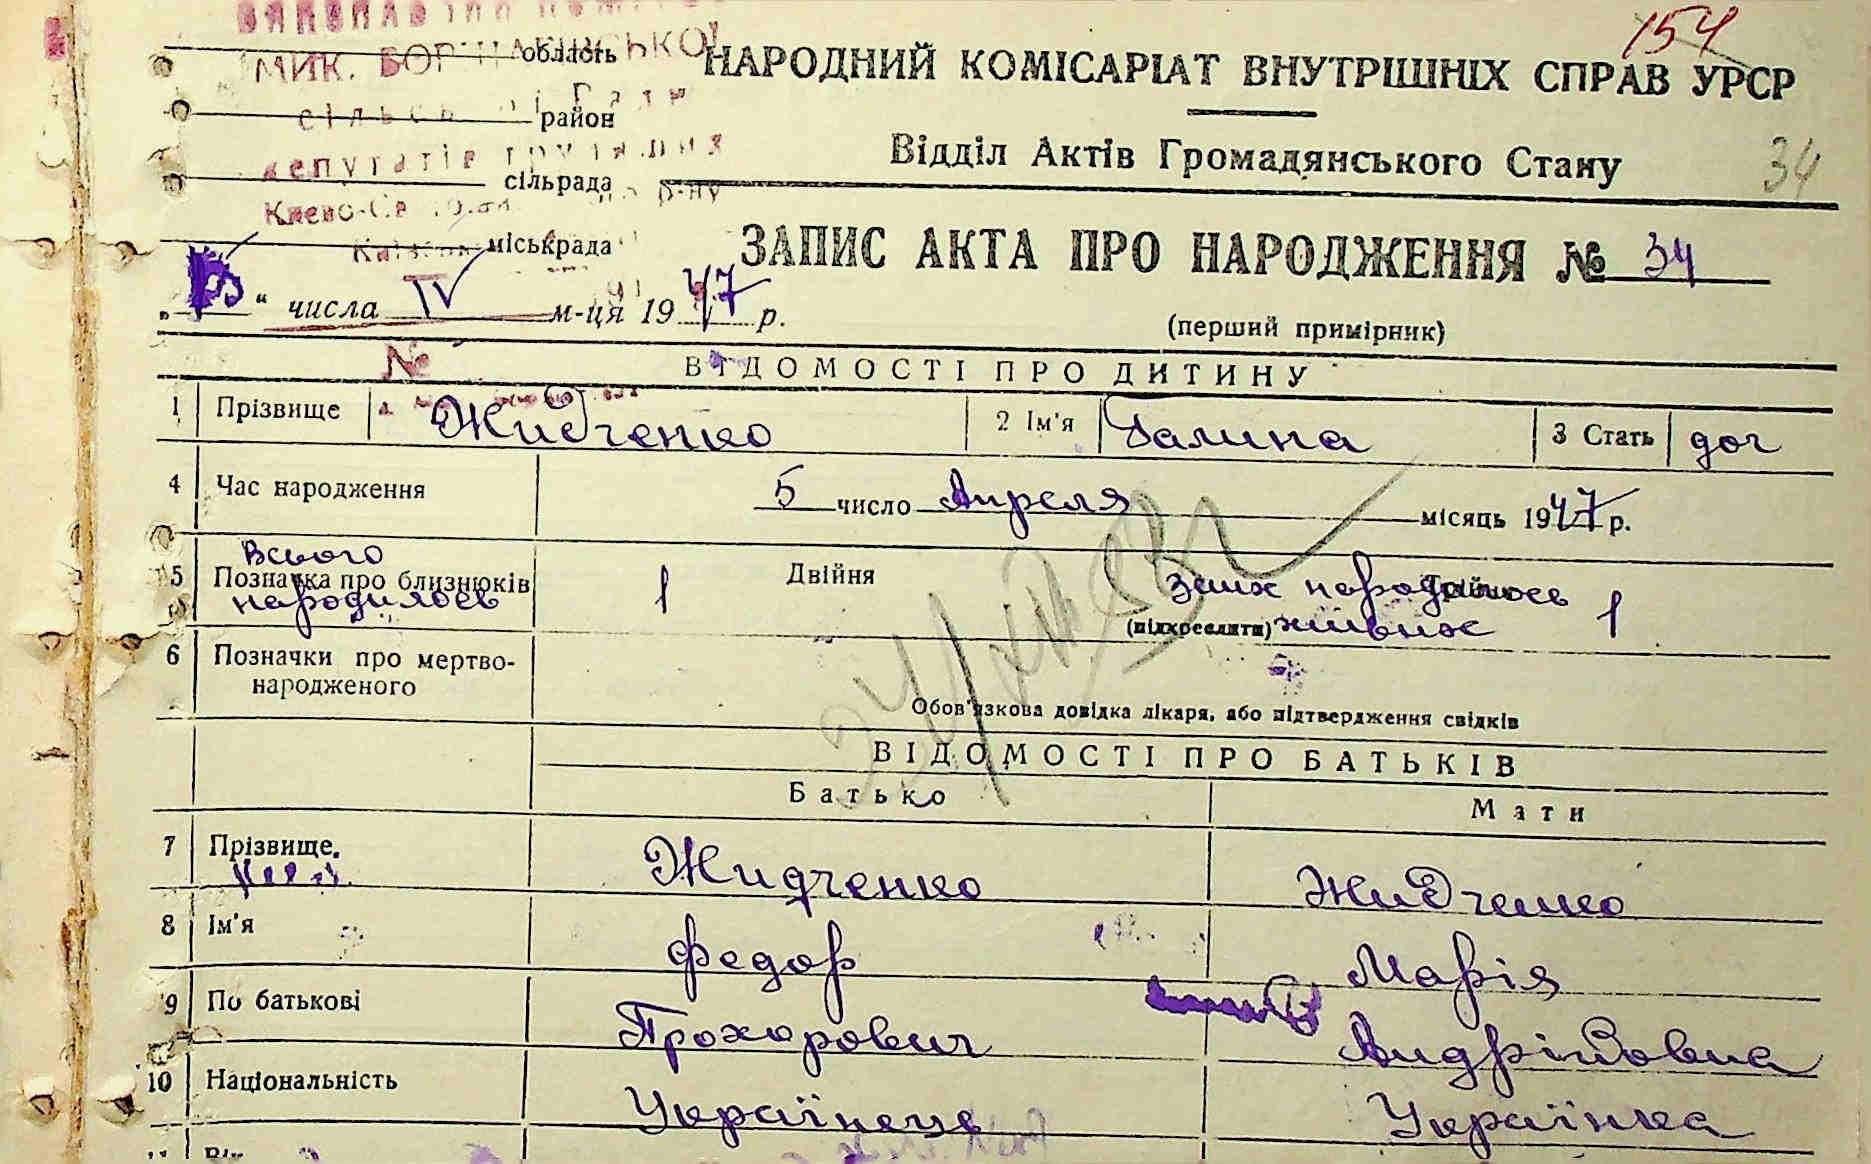 154
МИК. БОР
область НАРОДНИЙ КОМІСАРІАТ ВНУТРІШНІХ СПРАВ УРСР
район
депутатів трудящих
Відділ Актів Громадянського Стану 34
сільрада р-ну
міськрада
ЗАПИС АКТА ПРО НАРОДЖЕННЯ № 34
„ “ числа IV м-ця 1947 р.
(перший примірник)
№
ВІДОМОСТІ ПРО ДИТИНУ
1 Прізвище Жидченко 2 Ім'я Галина 3 Стать доч
4 Час народження 5 число Апреля місяць 1947 р.
Всього
5 Позначка про близнюків 1 Двійня з них народилось 1
народилось (підкреслити) живих
6 Позначки про мертво-
народженого
Обов'язкова довідка лікаря, або підтвердження свідків
ВІДОМОСТІ ПРО БАТЬКІВ
Батько Мати
7 Прізвище. Жидченко Жидченко
8 Ім'я Федор Марія
9 По батькові Прохорович Андріївовна
10 Національність Українець Українка
11 Вік